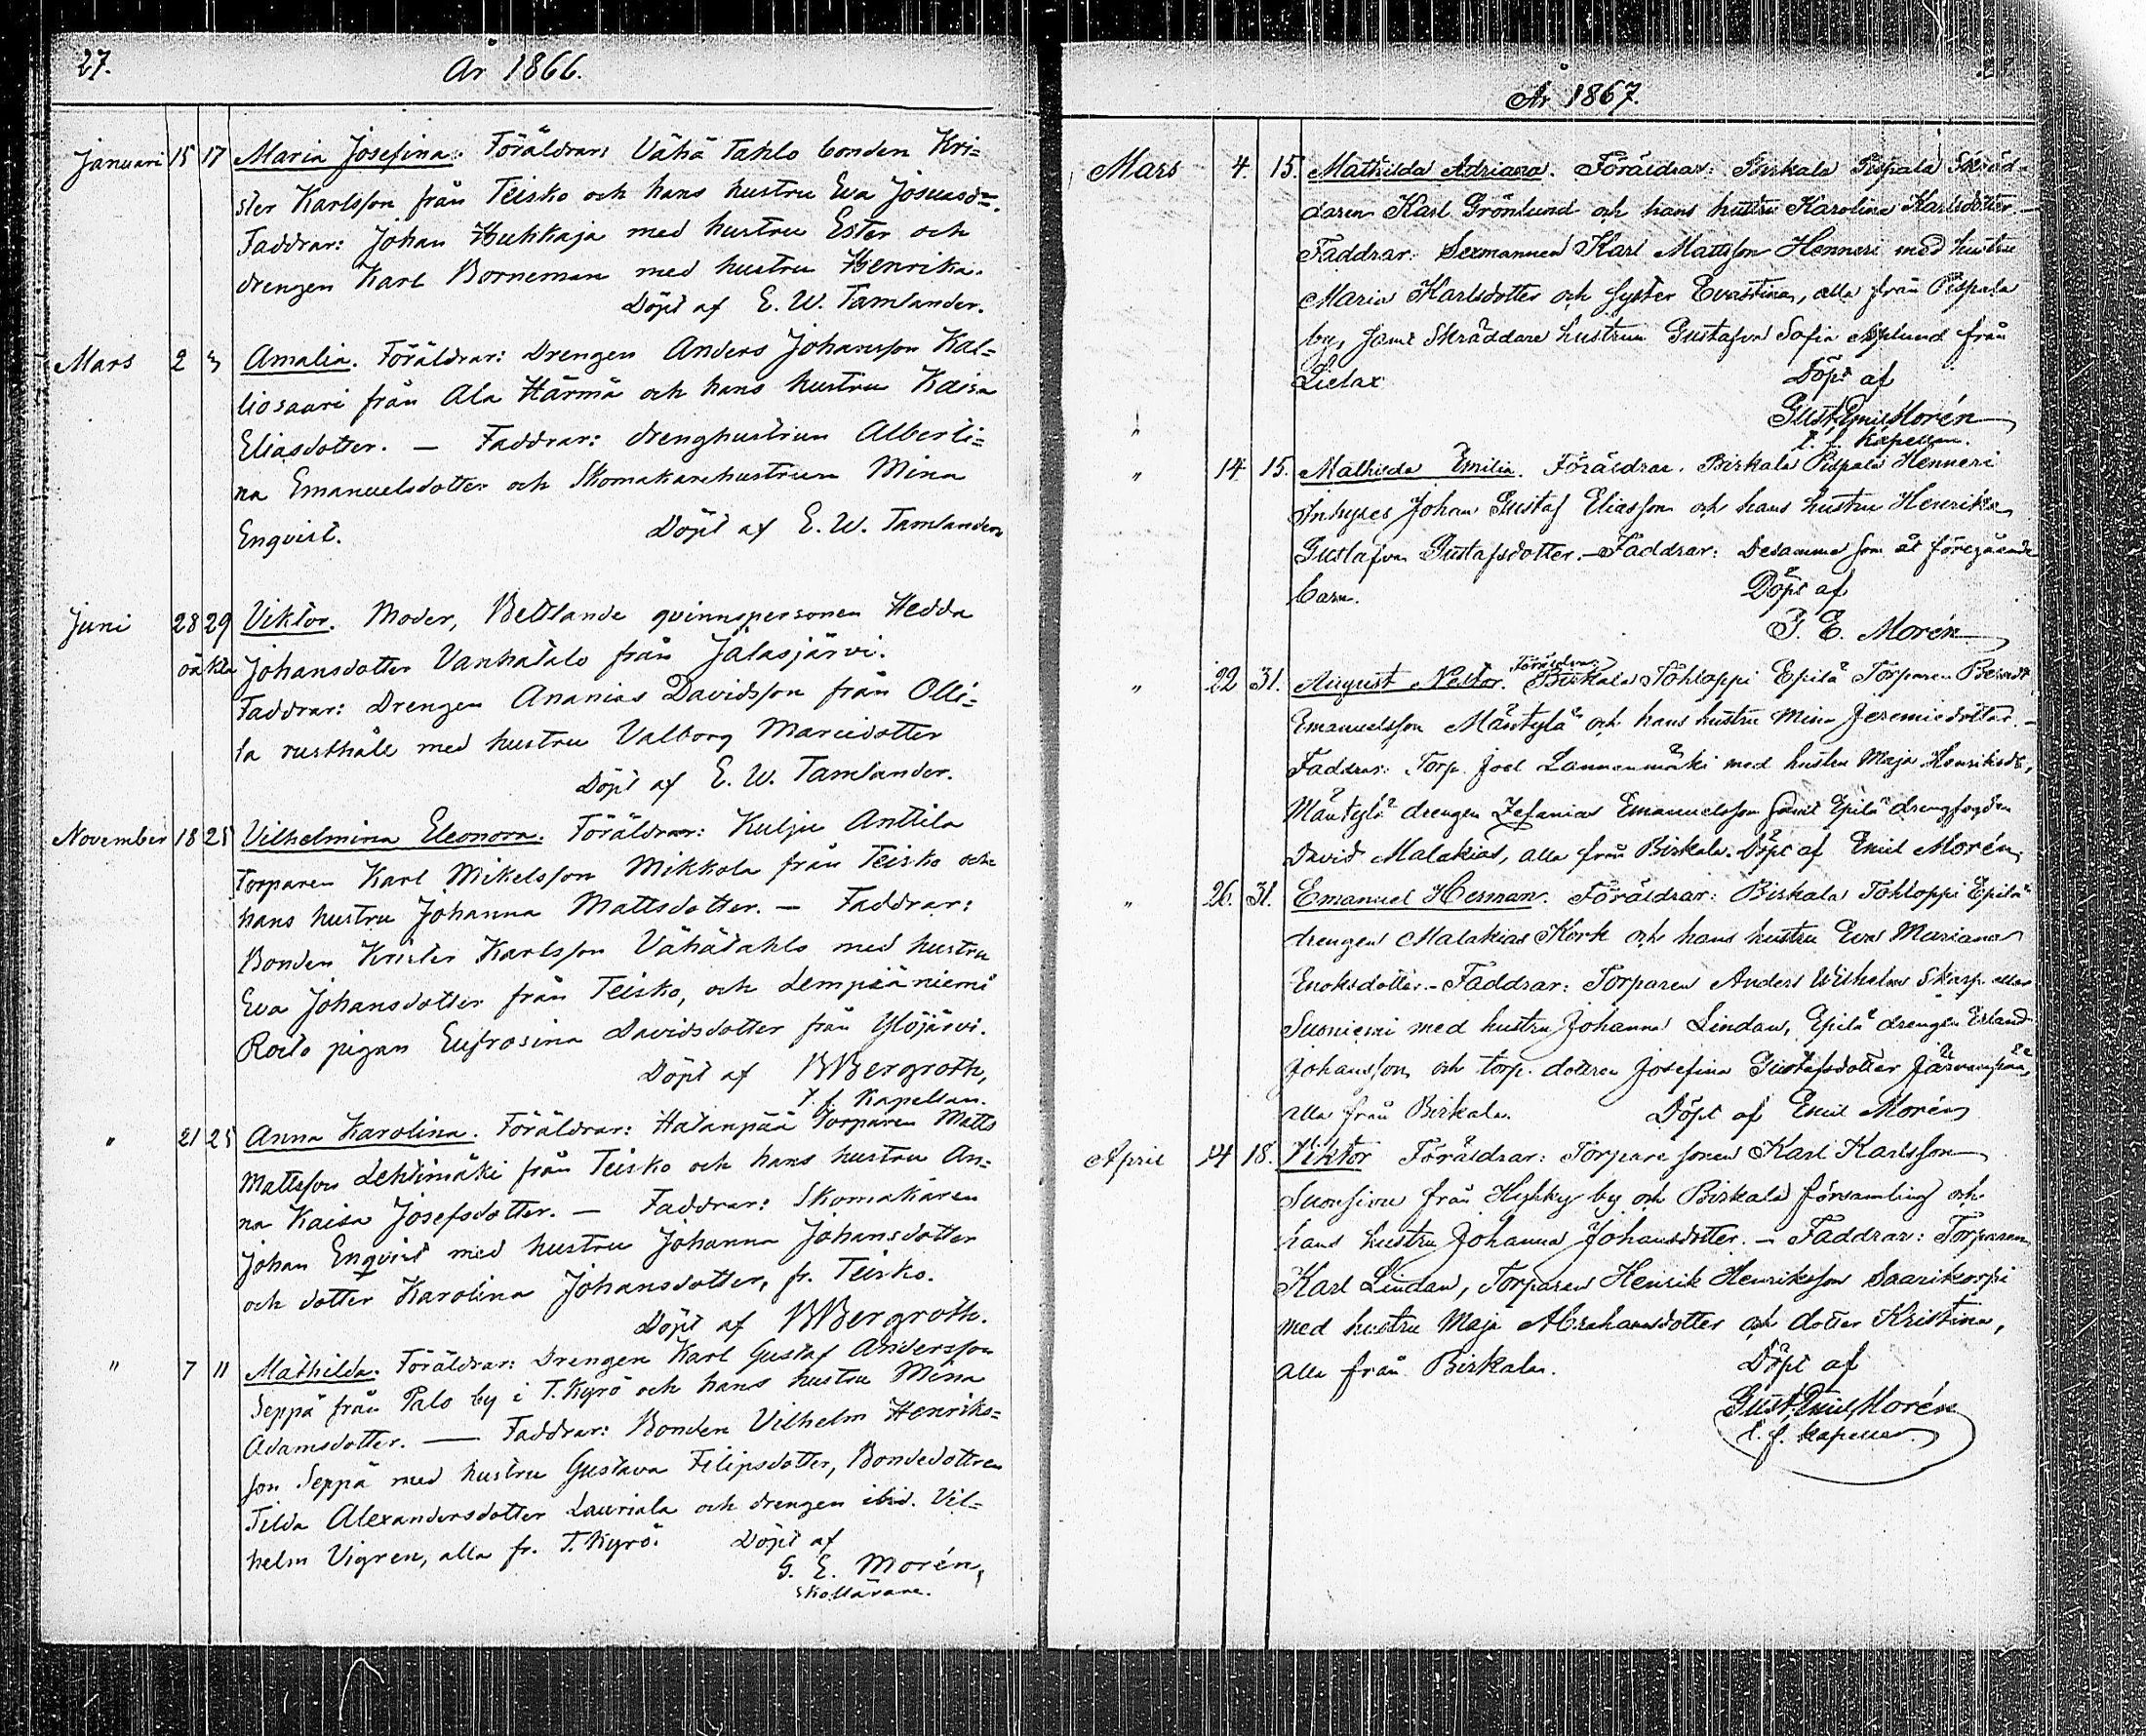 27.
År 1866.
Januari 15 17 Maria Josefina. Föräldrar: Vähä Tahlo bonden Kri=
ster Karlsson från Teisko och hans hustru Eva Josuasdr.
Faddrar: Johan Huhkaja med hustru Ester och
drengen Karl Borneman med hustru Henrika.
Döpt af E. W. Tamlander.
Mars 2 3 Amalia. Föräldrar: Drengen Anders Johansson Kal=
liosaari från Ala Härmä och hans hustru Kaisa
Eliasdotter. — Faddrar: drenghustrun Alberti=
na Emanuelsdotter och Skomakarehustrun Mina
Enqvist. Döpt af E. W. Tamlander
Juni 28 29 Viktor. Moder, Betlande qvinnspersonen Hedda
oä kta Johansdotter Vanhatalo från Jalasjärvi.
Faddrar: Drengen Ananias Davidsson från Olli=
la rusthåll med hustru Valborg Mariedotter
Döpt af E. W. Tamlander.
November 18 25 Vilhelmina Eleonora. Föräldrar: Kulju Anttila
Torparen Karl Mikelsson Mikkola från Teisko och
hans hustru Johanna Mattsdotter. — Faddrar:
Bonden Krister Karlsson Vähätahlo med hustru
Eva Johansdotter från Teisko, och Lempiäniemi
Rolo pigan Eufrosina Davidsdotter från Ylöjärvi.
Döpt af BBergroth,
t. f. Kapellan.
" 21 25 Anna Karolina. Föräldrar: Hatanpää Torparen Matts
Mattsson Lehtimäki från Teisko och hans hustru An=
na Kaisa Josefsdotter. — Faddrar: Skomakaren
Johan Enqvist med hustru Johanna Johansdotter
och dotter Karolina Johansdotter, fr. Teisko.
Döpt af BBergroth.
" 7 11 Mathilda. Föräldrar: Drengen Karl Gustaf Andersson
Seppä från Palo by i T. Kyrö och hans hustru Mina
Adamsdotter. — Faddrar: Bonden Vilhelm Henriks=
son Seppä med hustru Gustava Filipsdotter, Bondedottren
Tilda Alexandersdotter Lauriala och drengen ibid. Vil=
helm Vigren, alla fr. T. Kyrö. Döpt af
G. E. Morén,
skollärare.
År 1867.
Mars 4. 15. Mathilda Adriana. Föräldrar: Birkala Pispala Skräd=
daren Karl Grönlund och hans hustru Karolina Karlsdotter —
Faddrar: Sexmannen Karl Mattsson Henneri med hustru
Maria Karlsdotter och syster Evastina, alla från Pispala
by, samt Skräddare hustrun Gustafva Sofia Asplund från
Lielax Döpt af
" Gust. Emil Morén
t. f. kapellan.
" 14 15. Mathilda Emilia. Föräldrar. Birkala Pispala Henneri
Inhyses Johan Gustaf Eliasson och hans hustru Henrika
Gustafva Gustafsdotter. — Faddrar: Desamma som åt föregående
barn. Döpt af
G. E. Morén
" 22 31. August Nestor. Föräldrar: Birkala Tohloppi Epilä Torparen Berndt
Emanuelsson Mäntylä och hans hustru Mina Jeremiedotter. —
Faddrar: Torp. Joel Lannenmäki med hustru Maja Henriksdr,
Mäntylä drengen Zefanias Emanuelsson samt Epilä drengfogden
David Malakias, alla från Birkala. Döpt af Emil Morén.
" 26. 31. Emanuel Herman. Föräldrar: Birkala Tohloppi Epilä
drengen Malakias Kork och hans hustru Eva Mariana
Enoksdotter. — Faddrar: Torparen Anders Wilhelm Skarp eller
Suoniemi med hustru Johanna Lindan, Epilä drengen Erland
Johansson och torp. dottren Josefina Gustafsdotter Järvenpää,
alla från Birkala. Döpt af Emil Morén
April 14 18. Viktor Föräldrar: Torpare sonen Karl Karlsson
Suonsivu från Hyhky by och Birkala församling och
hans hustru Johanna Johansdotter. — Faddrar: Torparen
Karl Lindan, Torparen Henrik Henriksson Saarikorpi
med hustru Maja Abrahamsdotter och dotter Kristina,
alla från Birkala. Döpt af
Gust. Emil Morén
t. f. kapellan